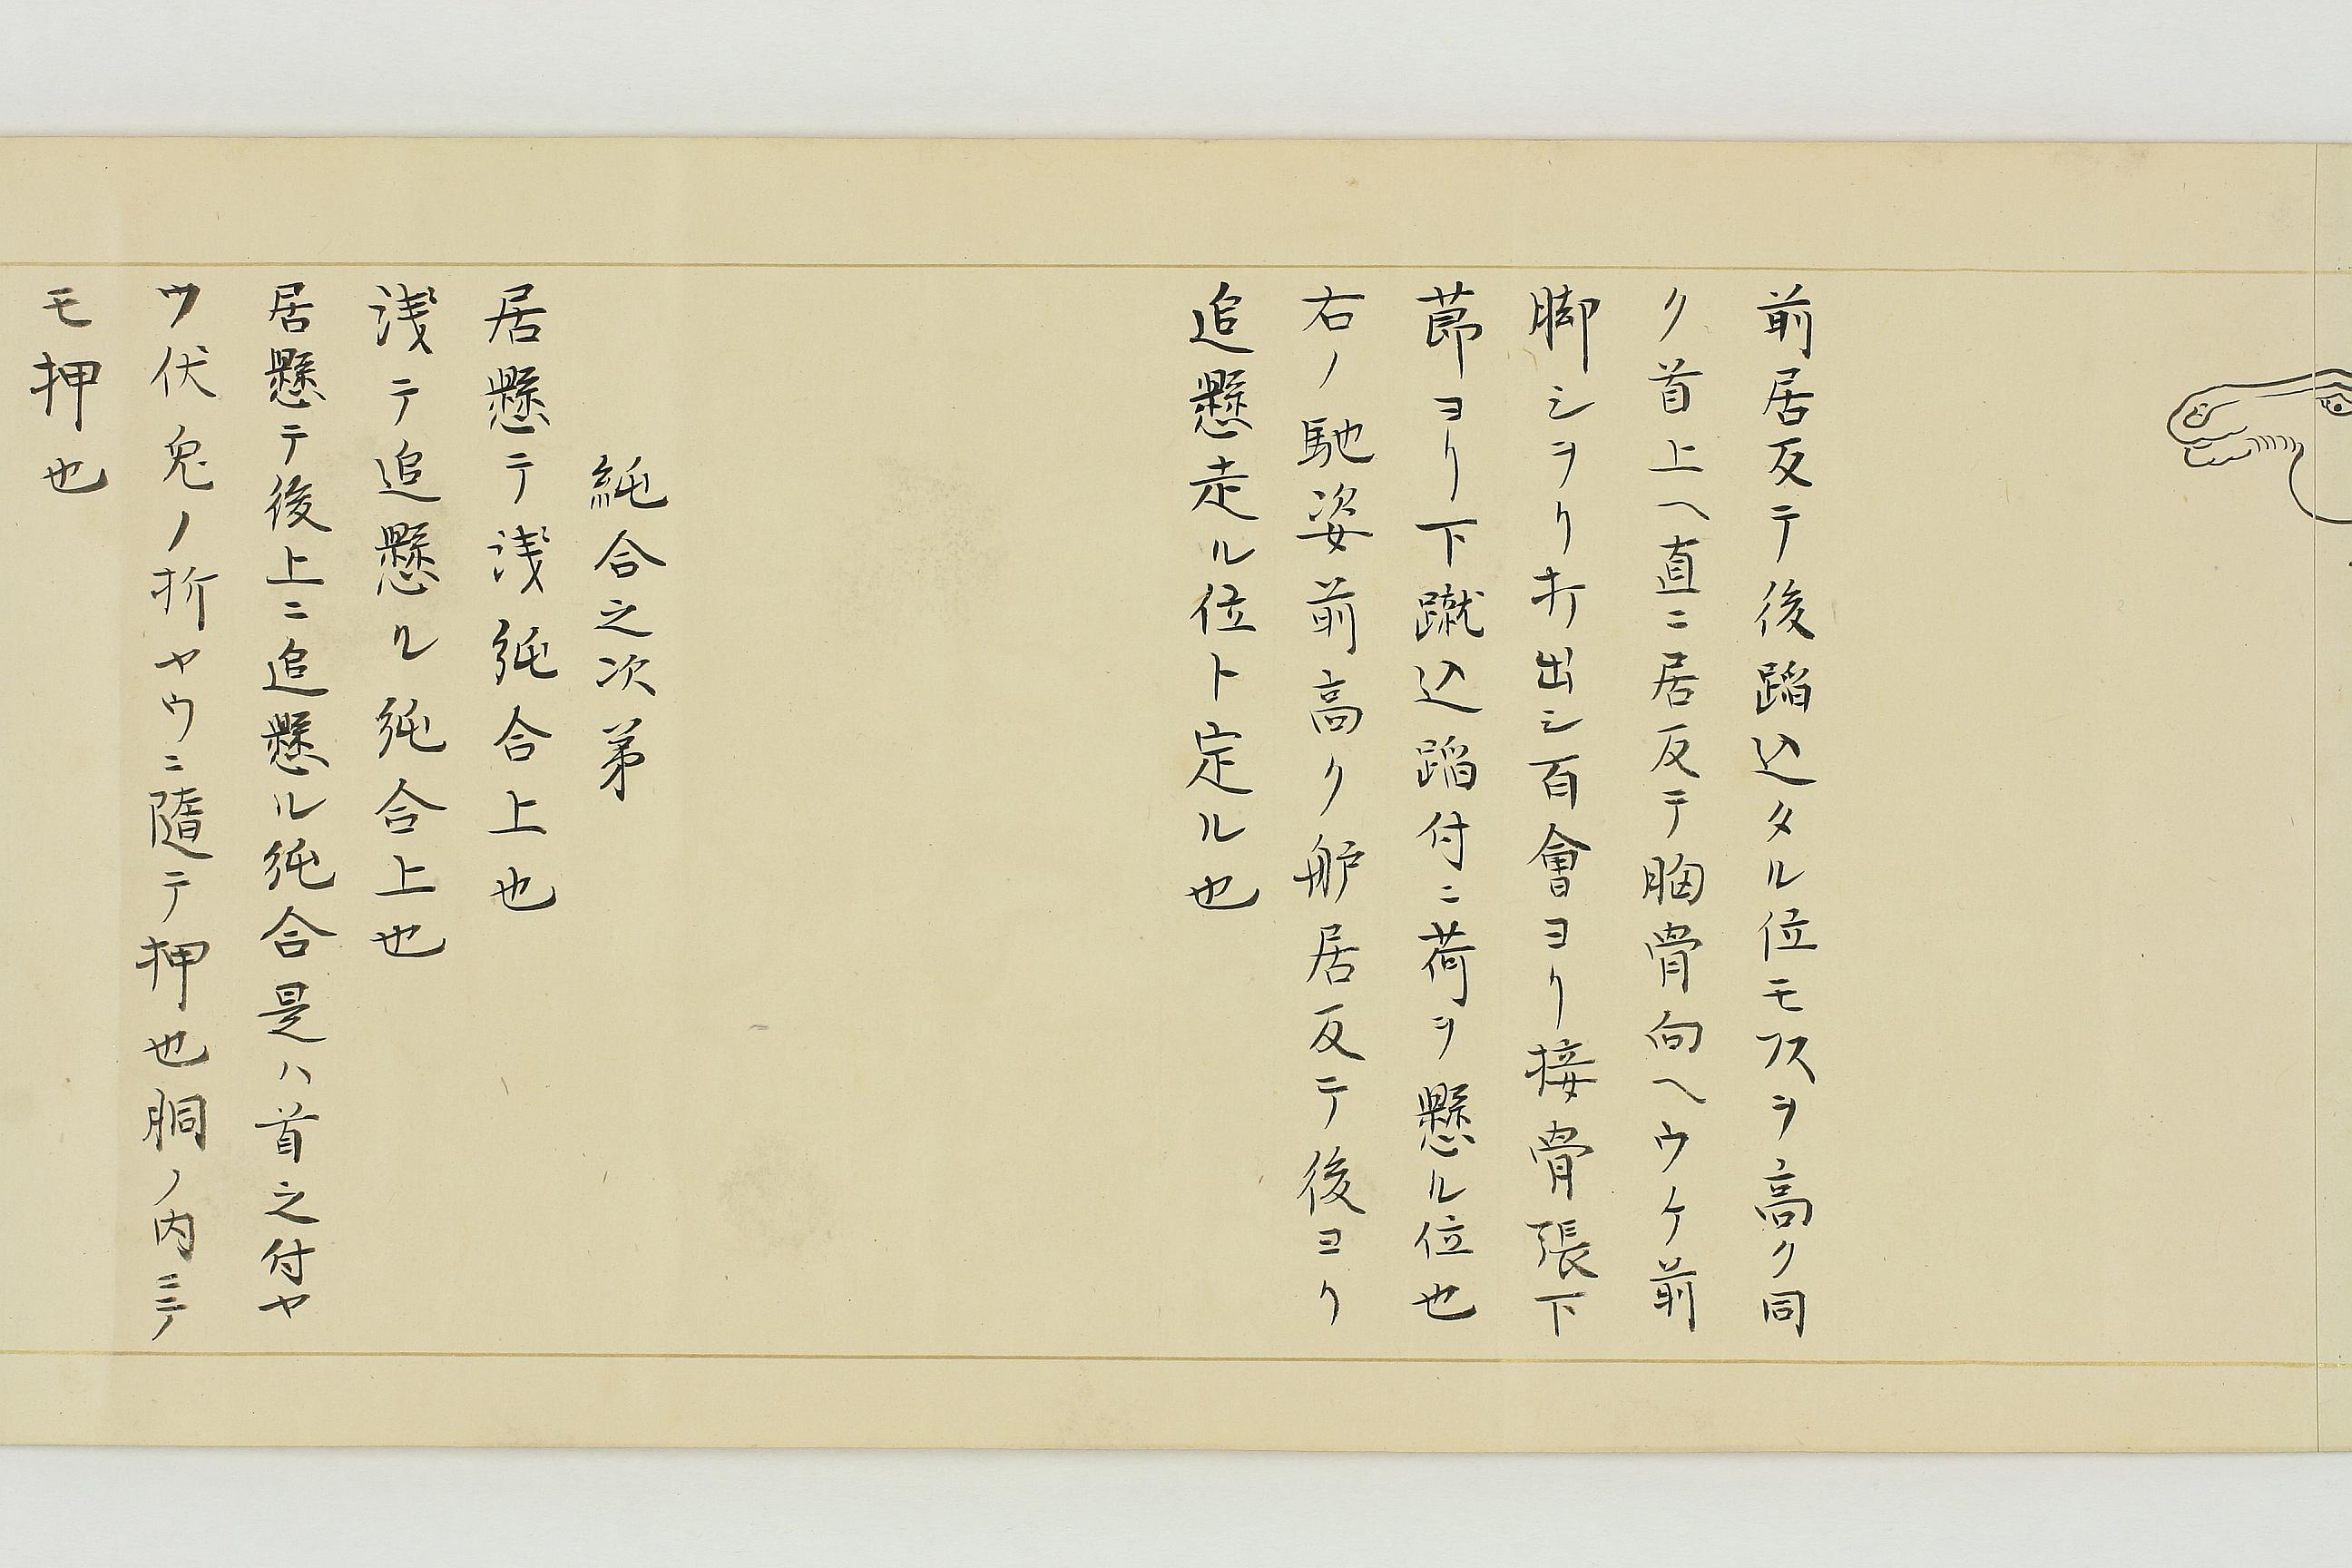 前居反テ後蹈込タル位モフスヲ高ク同
ク首上ヘ直ニ居反テ胸骨向ヘウケ前
脚シヲリ折出シ百會ヨリ接骨張下
莭ヨリ下蹴込蹈付ニ荷ヲ懸ル位也
右ノ馳姿前高ク舮居反テ後ヨリ
追懸走ル位ト定ル也
純合之次第
居懸テ浅純合上也
浅テ追懸ル純合上也
居懸テ後上ニ追懸ル純合是ハ首之付ヤ
ウ伏兔ノ折ヤウニ随テ押也胴ノ内ニテ
モ押也